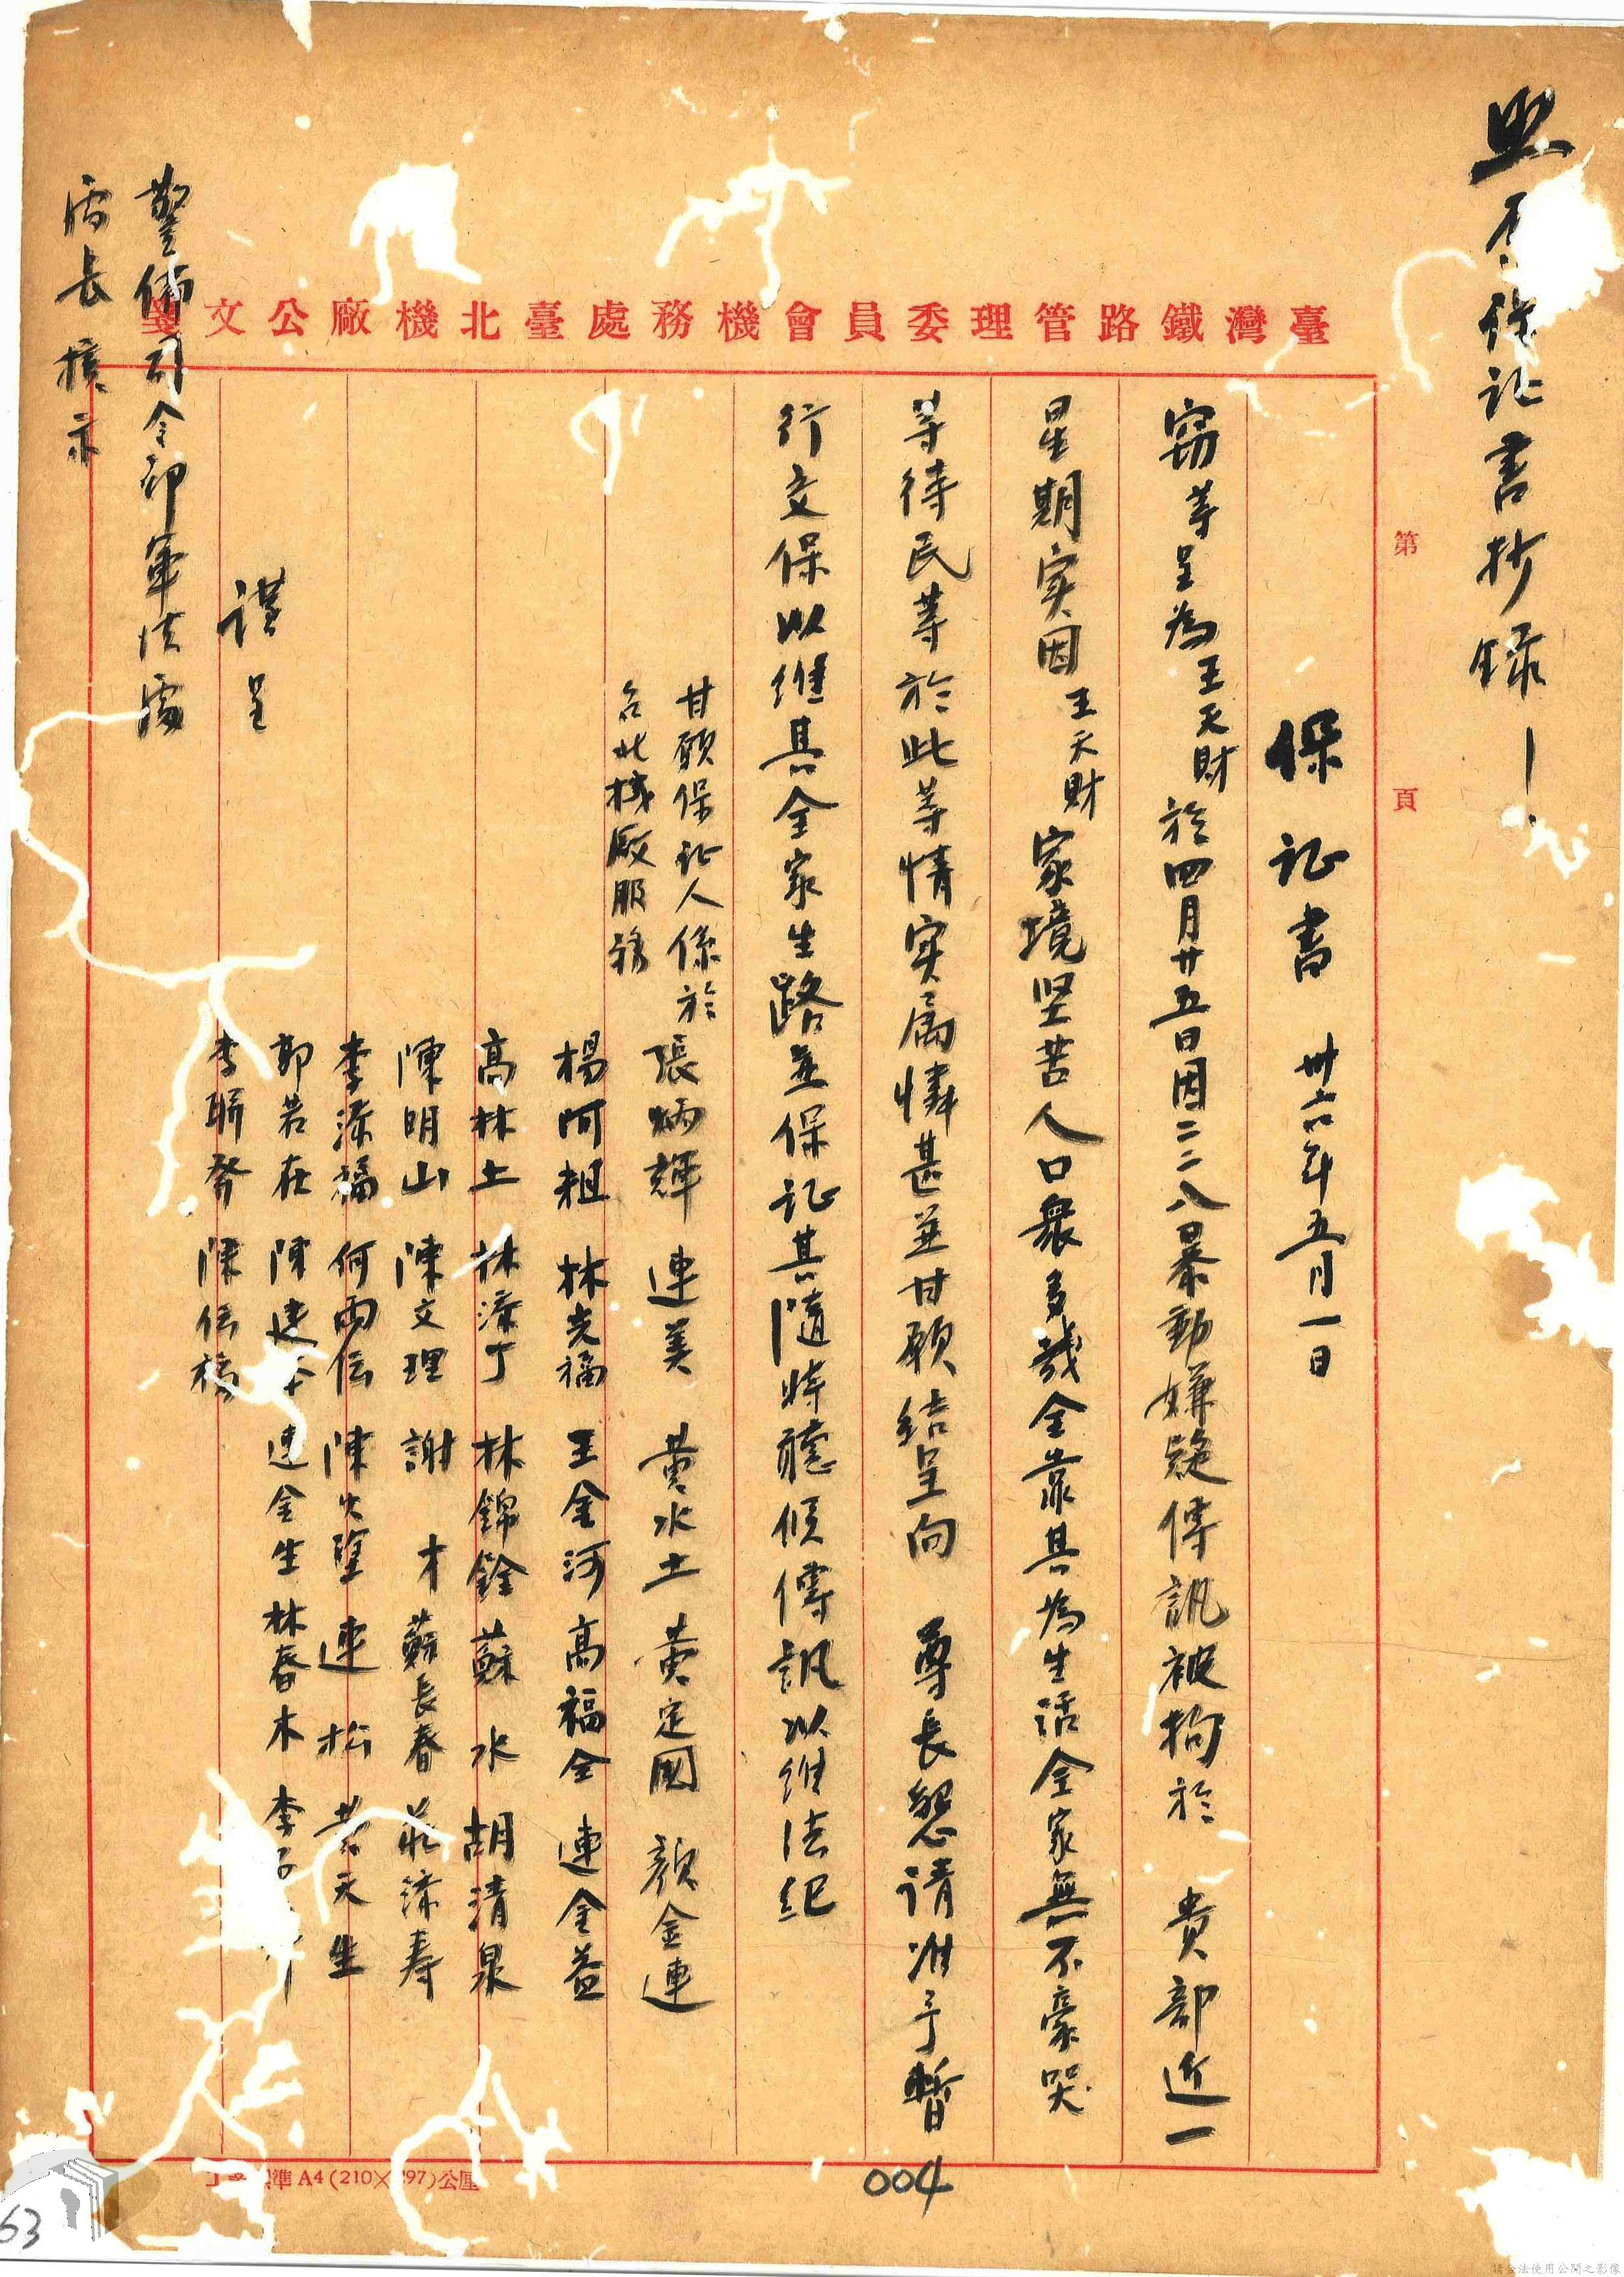 照原保証書抄錄—
臺灣鐵路管理委員會機務處臺北機廠公文箋
第 頁
保証書 卅六年五月一日
窃等呈為王天財於四月廿五日因二二八暴動嫌疑傳訊被拘於 貴部近一
星期实因王天財家境坚苦人口衆多幾全靠其為生活全家無不豪哭
等待民等於此等情实属憐甚並甘願結呈向 尊長懇請准予暫
行交保以維其全家生路並保証其隨時聽候傳訊以維法紀
甘願保証人係於
台北機廠服務
張炳輝 連美 黄水土 黄定國 顏金連
楊阿粗 林光福 王金河 高福全 連金益
高林土 林添丁 林錦銓 蘇水 胡清泉
陳明山 陳文理 謝才 蘇長春 莊添寿
李添福 何雨伝 陳火塗 連松 黄天生
郭若在 陳建 連金生 林春木 李
李聯發 陳伝福
謹呈
警備司令部軍法處
處長 核示
準A4(210×297)公厘
004
63
請合法使用公開之影像